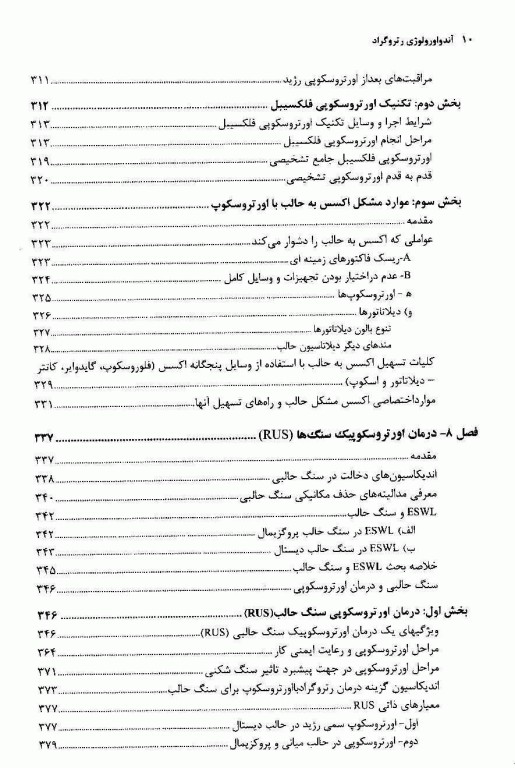 ۱۰ آندواورولوژی رتروگراد
مراقبت‌های بعداز اورتروسکوپی رژید ۳۱۱
بخش دوم: تکنیک اورتروسکوپی فلکسیبل ۳۱۲
شرایط اجرا و وسایل تکنیک اورتروسکوپی فلکسیبل ۳۱۳
مراحل انجام اورتروسکوپی فلکسیبل ۳۱۳
اورتروسکوپی فلکسیبل جامع تشخیصی ۳۱۹
قدم به قدم اورتروسکوپی تشخیصی ۳۲۰
بخش سوم: موارد مشکل اکسس به حالب با اورتروسکوپ ۳۲۲
مقدمه ۳۲۲
عواملی که اکسس به حالب را دشوار می‌کند ۳۲۳
A-ریسک فاکتورهای زمینه ای ۳۲۳
B- عدم دراختیار بودن تجهیزات و وسایل کامل ۳۲۴
ه - اورتروسکوپ‌ها ۳۲۵
و) دیلاتاتورها ۳۲۶
تنوع بالون دیلاتاتورها ۳۲۷
متدهای دیگر دیلاتاسیون حالب ۳۲۸
کلیات تسهیل اکسس به حالب با استفاده از وسایل پنجگانه اکسس (فلوروسکوپ، گایدوایر، کانتر
– دیلاتاتور و اسکوپ) ۳۲۹
موارداختصاصی اکسس مشکل حالب و راه‌های تسهیل آنها ۳۳۱
فصل ۸- درمان اورتروسکوپیک سنگ‌ها (RUS) ۳۳۷
مقدمه ۳۳۷
اندیکاسیون‌های دخالت در سنگ حالبی ۳۳۸
معرفی مدالیته‌های حذف مکانیکی سنگ حالبی ۳۴۰
ESWL و سنگ حالب ۳۴۲
الف) ESWL در سنگ حالب پروگزیمال ۳۴۲
ب) ESWL در سنگ حالب دیستال ۳۴۳
خلاصه بحث ESWL و سنگ حالب ۳۴۵
سنگ حالبی و درمان اورتروسکوپی ۳۴۶
بخش اول: درمان اورتروسکوپی سنگ حالب(RUS) ۳۴۶
ویژگیهای یک درمان اورتروسکوپیک سنگ حالبی (RUS) ۳۴۶
مراحل اورتروسکوپی و رعایت ایمنی کار ۳۶۴
مراحل اورتروسکوپی در جهت پیشبرد تاثیر سنگ شکنی ۳۷۱
اندیکاسیون گزینه درمان رتروگرادبااورتروسکوپ برای سنگ حالب ۳۷۳
معیارهای ذاتی RUS ۳۷۷
اول- اورتروسکوپ سمی رژید در حالب دیستال ۳۷۷
دوم- اورتروسکوپی در حالب میانی و پروکزیمال ۳۷۹